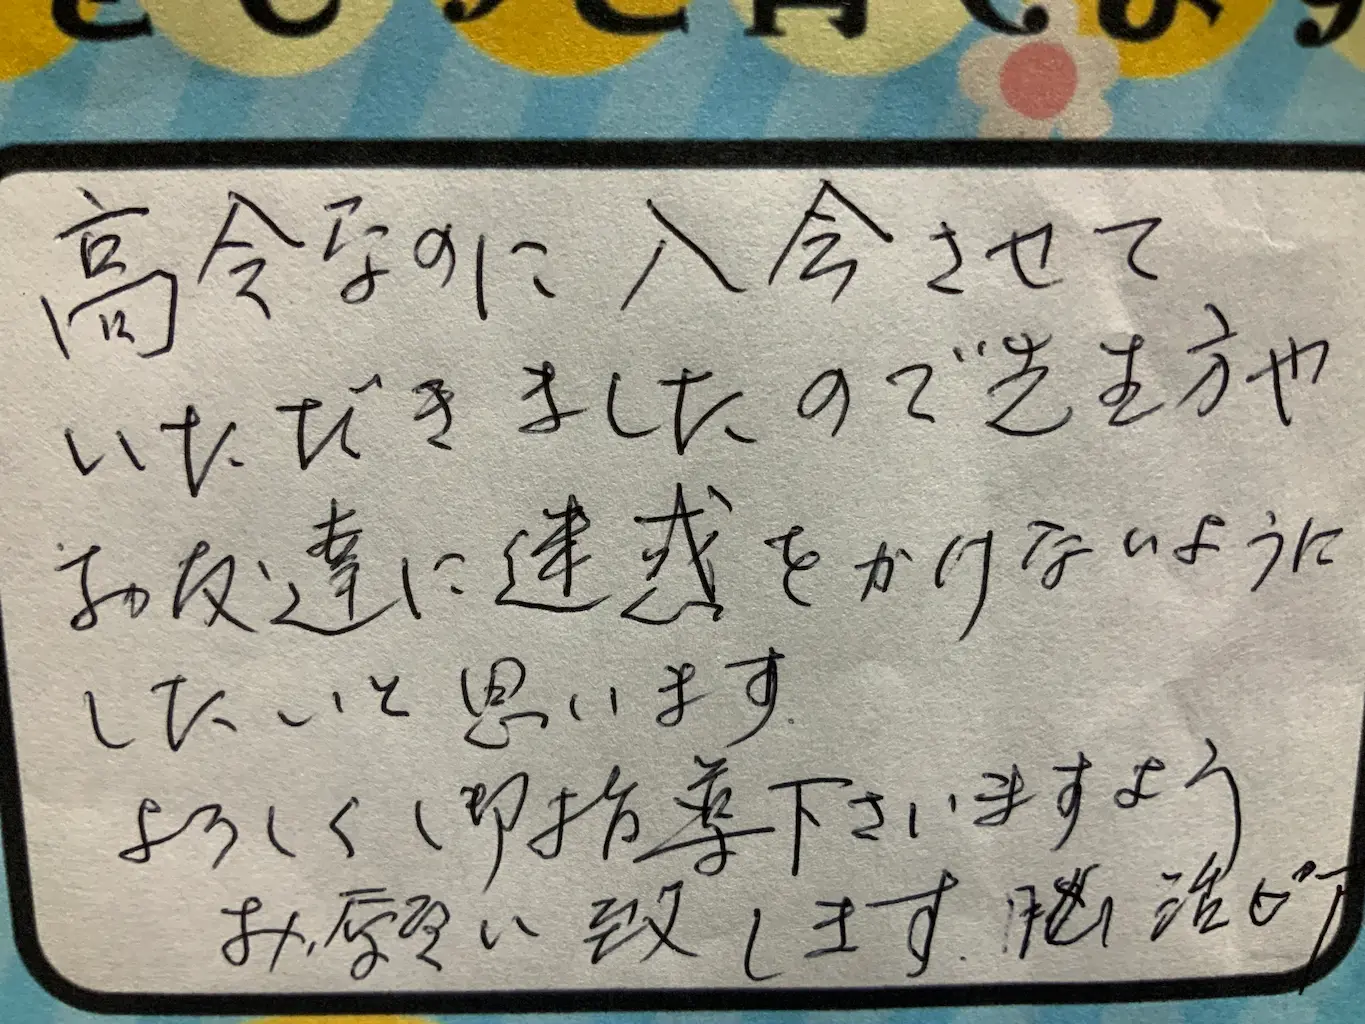 高令なのに入会させて
いただきましたので先生方や
お友達に迷惑をかけないように
したいと思います.
よろしく御指導下さいますよう
お願い致します. 脳活ピア